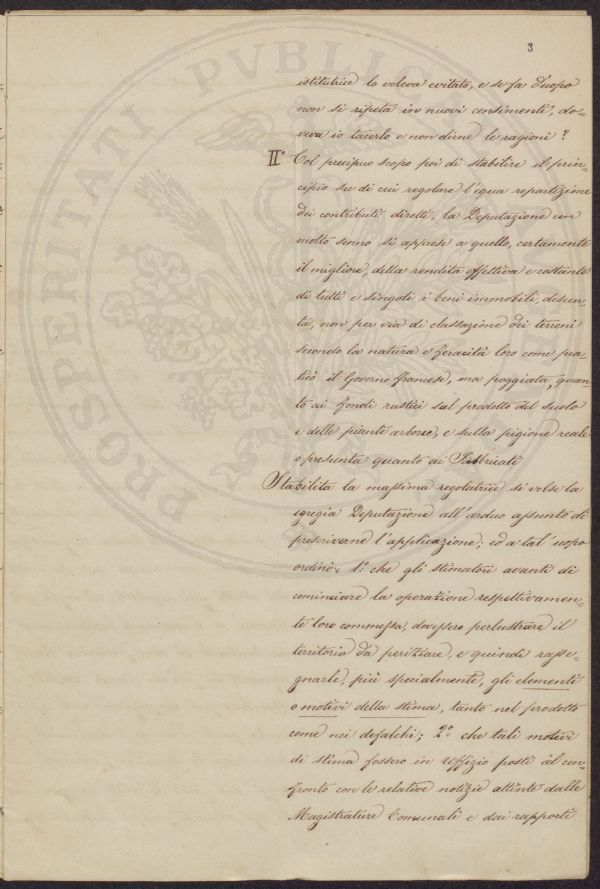 3
istitutrice lo voleva evitato, e se fa d'uopo
non si ripeta in nuovi censimenti, do=
veva io tacerlo e non dirne le ragioni?
II.° Col precipuo scopo poi di stabilire il prin=
cipio su di cui regolare l'equa repartizione
dei contributi diretti, la Deputazione con
molto senno si apprese a quello, certamente
il migliore, della rendita effettiva e costante
di tutti e singoli i beni immobili, desun=
ta, non per via di classazione dei terreni
secondo la natura e feracità loro come pra=
ticò il Governo francese, ma poggiata, quan=
to ai fondi rustici sul prodotto del suolo
e delle piante arboree, e sulla pigione reale
o presunta quanto ai Fabbricati
Stabilita la massima regolatrice si volse la
egregia Deputazione all'arduo assunto di
prescriverne l'applicazione; ed a tal'uopo
ordinò: 1.° che gli stimatori avanti di
cominciare la operazione respettivamen=
te loro commessa, dovessero perlustrare il
territorio da periziare, e quindi rasse=
gnarle, più specialmente, gli elementi
o motivi della stima, tanto nel prodotto
come nei defalchi; 2.° che tali motivi
di stima fossero in Uffizio posti al con=
fronto con le relative notizie attinte dalle
Magistrature Comunali e dai rapporti
PROSPERITATI PVBLIC